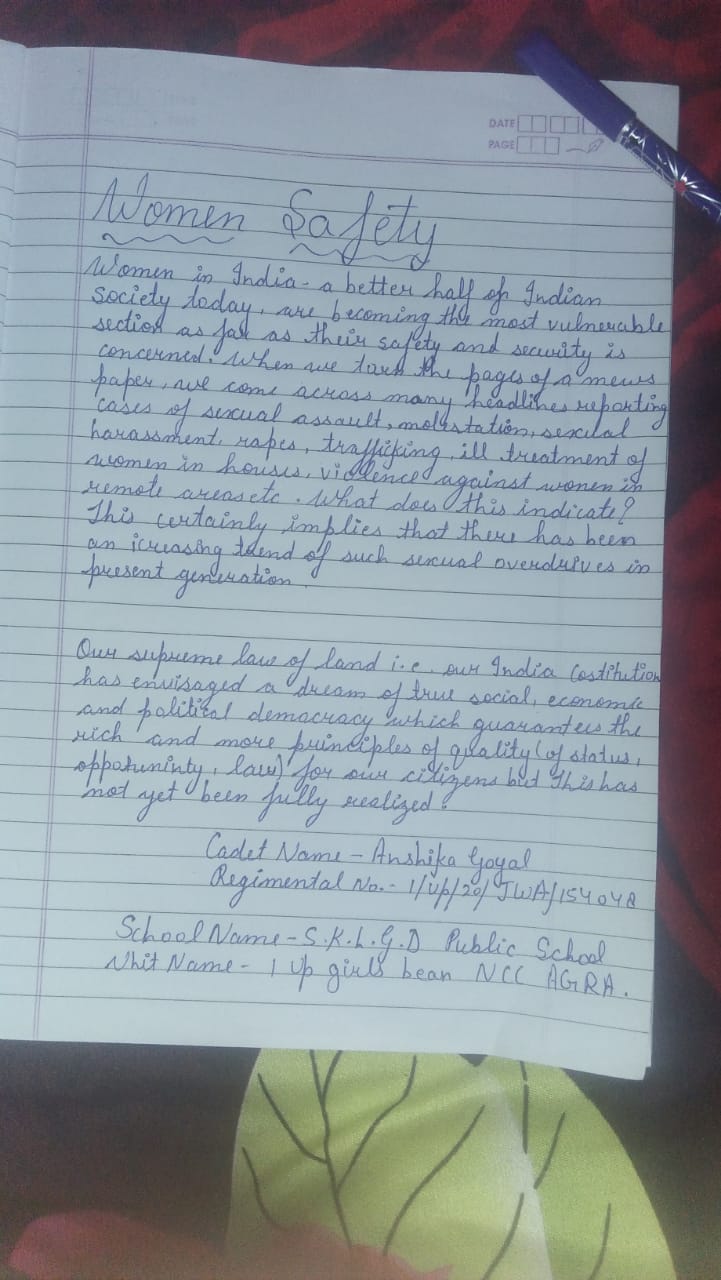 DATE
PAGE
Women Safety
Women in India - a better half of Indian
society today, are becoming the most vulnerable
section as far as their safety and security is
concerned. When we turn the pages of a news
paper, we come across many headlines reporting
cases of sexual assault, molestation, sexual
harassment, rapes, trafficking, ill treatment of
women in houses, violence against women in
remote areas etc. What does this indicate?
This certainly implies that there has been
an icreasing trend of such sexual overdrives in
present generation.
Our supreme law of land i.e. our India Costitution
has envisaged a dream of true social, economic
and political democracy which guarantees the
rich and more principles of quality (of status,
oppotuninty, law) for our citizens but this has
not yet been fully realized.
Cadet Name - Anshika Goyal
Regimental No. - 1/up/20/JWA/154048
School Name - S.K.L.G.D Public School
Unit Name - 1 up girls bean NCC AGRA.